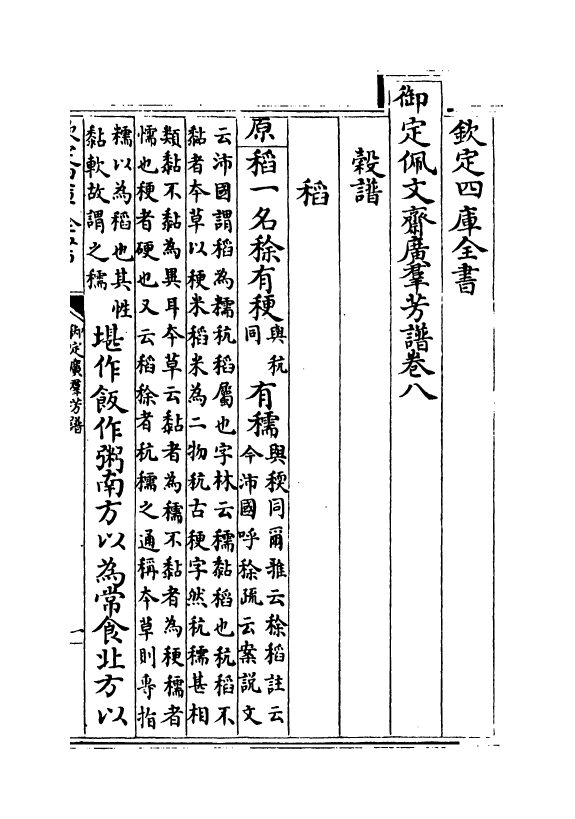 欽定四庫全書
御定佩文齋廣羣芳譜卷八
穀譜
稻
原稻一名稌有稉與秔同有穤與稬同爾雅云稌稻註云
今沛國呼稌疏云案説文
云沛國謂稻為糯秔稻屬也字林云穤黏稻也秔稻不
黏者本草以稉米稻米為二物秔古稉字然秔穤甚相
類黏不黏為異耳本草云黏者為穤不黏者為稉穤者
懦也稉者硬也又云稻稌者秔穤之通稱本草則專指
糯以為稻也其性
黏軟故謂之穤
堪作飯作粥南方以為常食北方以
御定廣羣芳譜
一